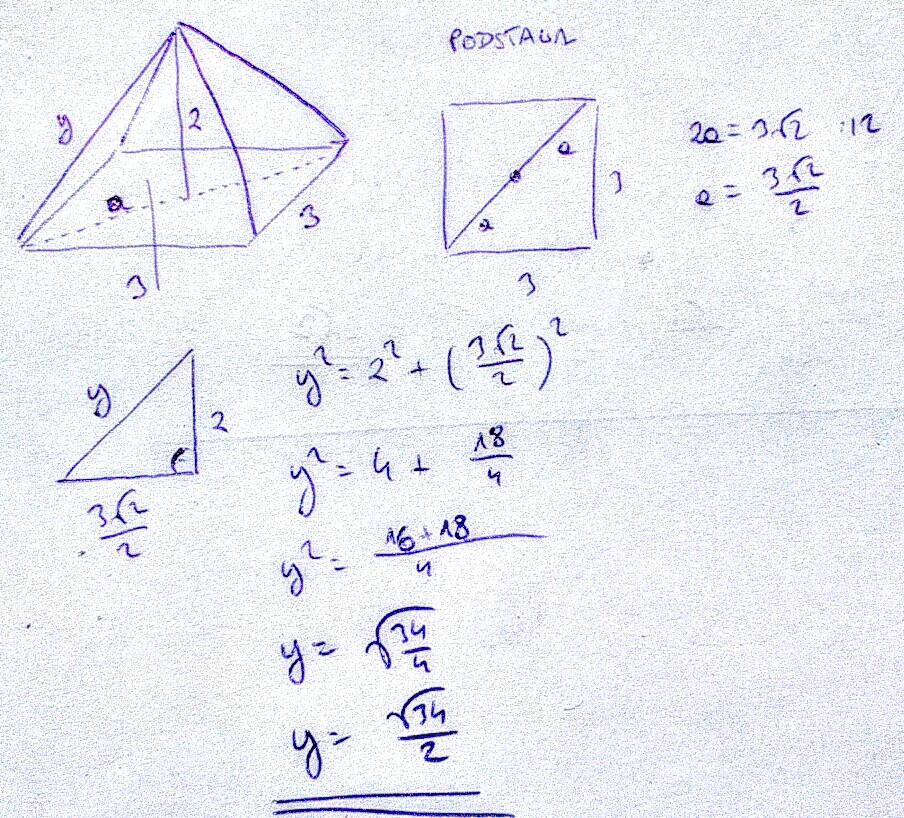 PODSTAWA
y
2
a
3
3
a
a
3
3
2a = 3√2 :12
a = 3√2/2
y
2
3√2/2
y² = 2² + (3√2/2)²
y² = 4 + 18/4
y² = 16+18/4
y = √34/4
y = √34/2